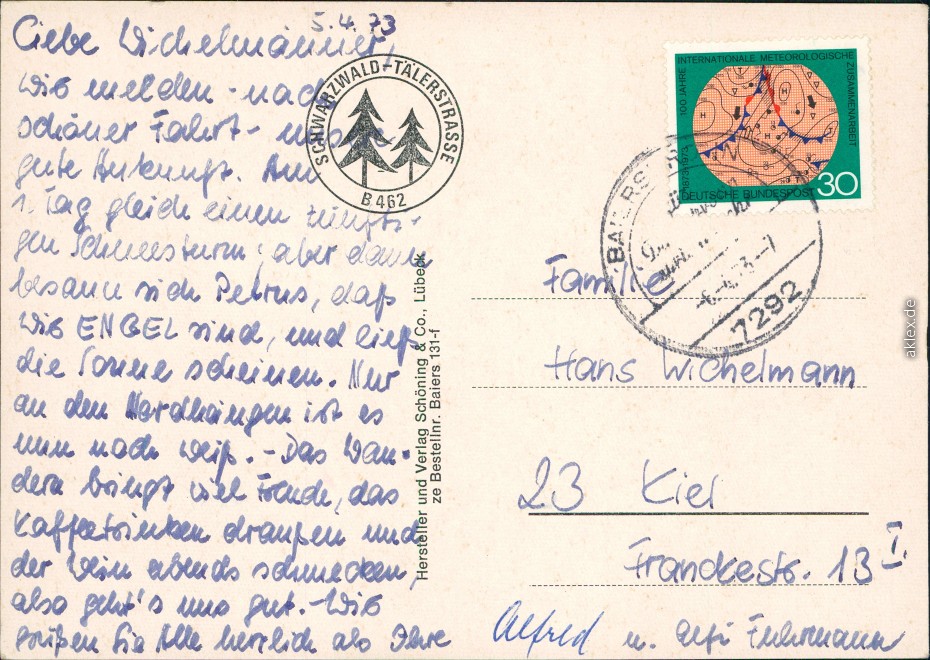 5.4.73
Liebe Wichelmänner,
wir melden - nach
schöner Fahrt - unsere
gute Ankunft. Am
1. Tag gleich einen zünfti-
gen Schneesturm; aber dann
besann sich Petrus, daß
wir ENGEL sind, und ließ
die Sonne scheinen. Nur
an den Nordhängen ist es
nun noch weiß. - Das Wan-
dern bringt viel Freude, das
Kaffeetrinken draußen und
der Wein abends schmecken,
also geht's uns gut. - Wir
grüßen Sie Alle herzlich als Ihre
Alfred u. Fuhrmann
SCHWARZWALD-TÄLERSTRASSE
B 462
Hersteller und Verlag Schöning & Co., Lübeck
ze Bestellnr. Baiers 131-f
100 JAHRE INTERNATIONALE METEOROLOGISCHE ZUSAMMENARBEIT
1873-1973
DEUTSCHE BUNDESPOST 30
7292
Familie
Hans Wichelmann
23 Kiel
Franckestr. 13 I.
aklex.de